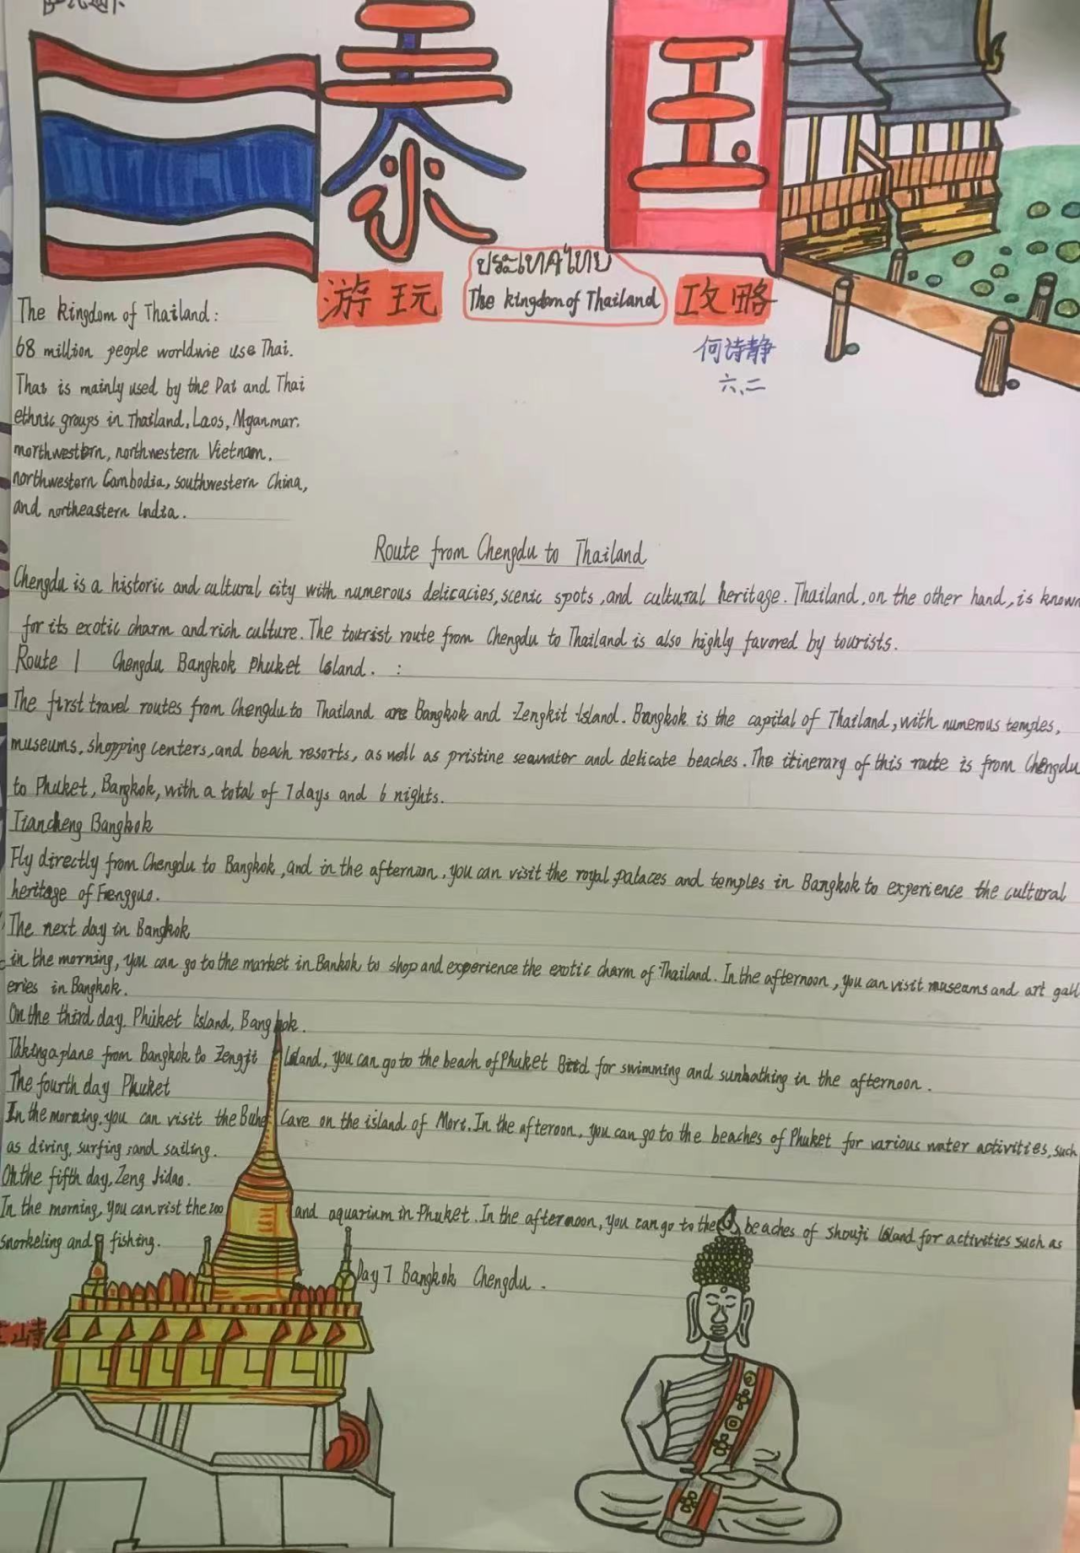 泰国
游玩
ประเทศไทย
The kingdom of Thailand
攻略
何诗静
六、二
The kingdom of Thailand:
68 million people worldwie use Thai.
That is mainly used by the Dat and Thai
ethnic groups in Thailand, Laos, Myanmar.
morthwestern, northwestern Vietnam.
northwestern Cambodia, southwestern China,
and northeastern India.
Route from Chengdu to Thailand
Chengdu is a historic and cultural city with numerous delicacies, scenic spots, and cultural heritage. Thailand, on the other hand, is known
for its exotic charm and rich culture. The tourist route from Chengdu to Thailand is also highly favored by tourists.
Route 1 Chengdu Bangkok Phuket Island. :
The first travel routes from Chengdu to Thailand are Bangkok and Zengkit Island. Bangkok is the capital of Thailand, with numerous temples,
museums, shopping centers, and beach resorts, as well as pristine seawater and delicate beaches. The itinerary of this route is from Chengdu
to Phuket, Bangkok, with a total of 7 days and 6 nights.
Tiancheng Bangkok
Fly directly from Chengdu to Bangkok, and in the afternoon, you can visit the royal palaces and temples in Bangkok to experience the cultural
heritage of Fengguo.
The next day in Bangkok
in the morning, you can go to the market in Bankok to shop and experience the exotic charm of Thailand. In the afternoon, you can visit museams and art gall
eries in Bangkok.
On the third day. Phuket Island, Bangkok.
Taking a plane from Bangkok to Zengji Island, you can go to the beach of Phuket for swimming and sunbathing in the afternoon.
The fourth day Phuket
In the morning, you can visit the Cave on the island of More. In the afteroon, you can go to the beaches of Phuket for various water activities, such
as diving, surfing sand sailing.
On the fifth day, Zeng Jidao.
In the morning, you can vist the zoo and aquarium in Phuket. In the afternoon, you can go to the beaches of Shouji Island for activities such as
snorkeling and fishing.
Day 7 Bangkok Chengdu.
山寺